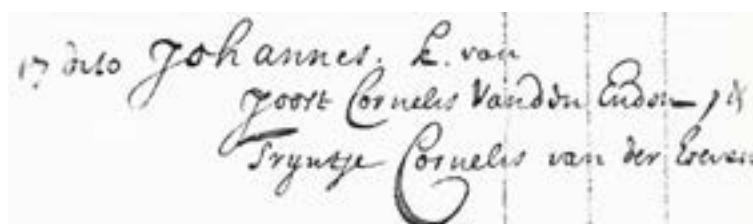 17 dito Johannes. k. van
Joost Cornelis Vandden Enden, &
Tryntje Cornelis van der